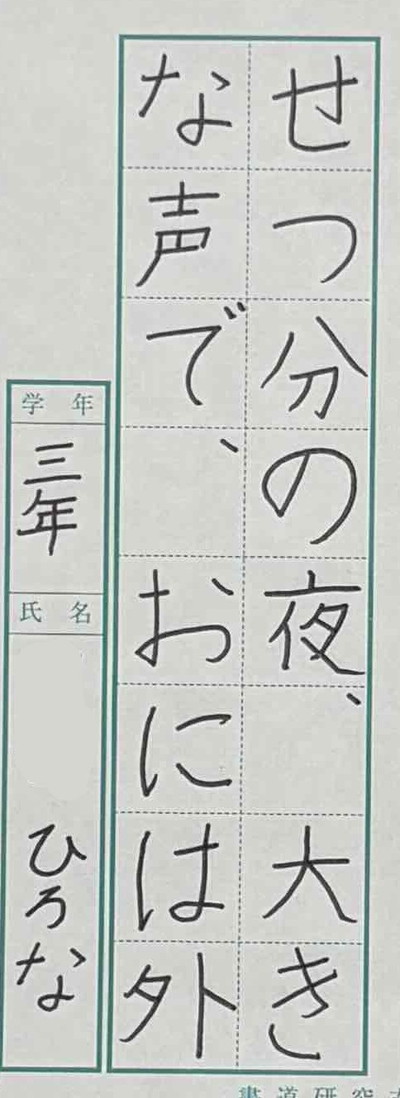 せつ分の夜、大き
な声で、おには外
学年
三年
氏名
ひろな
書道研究